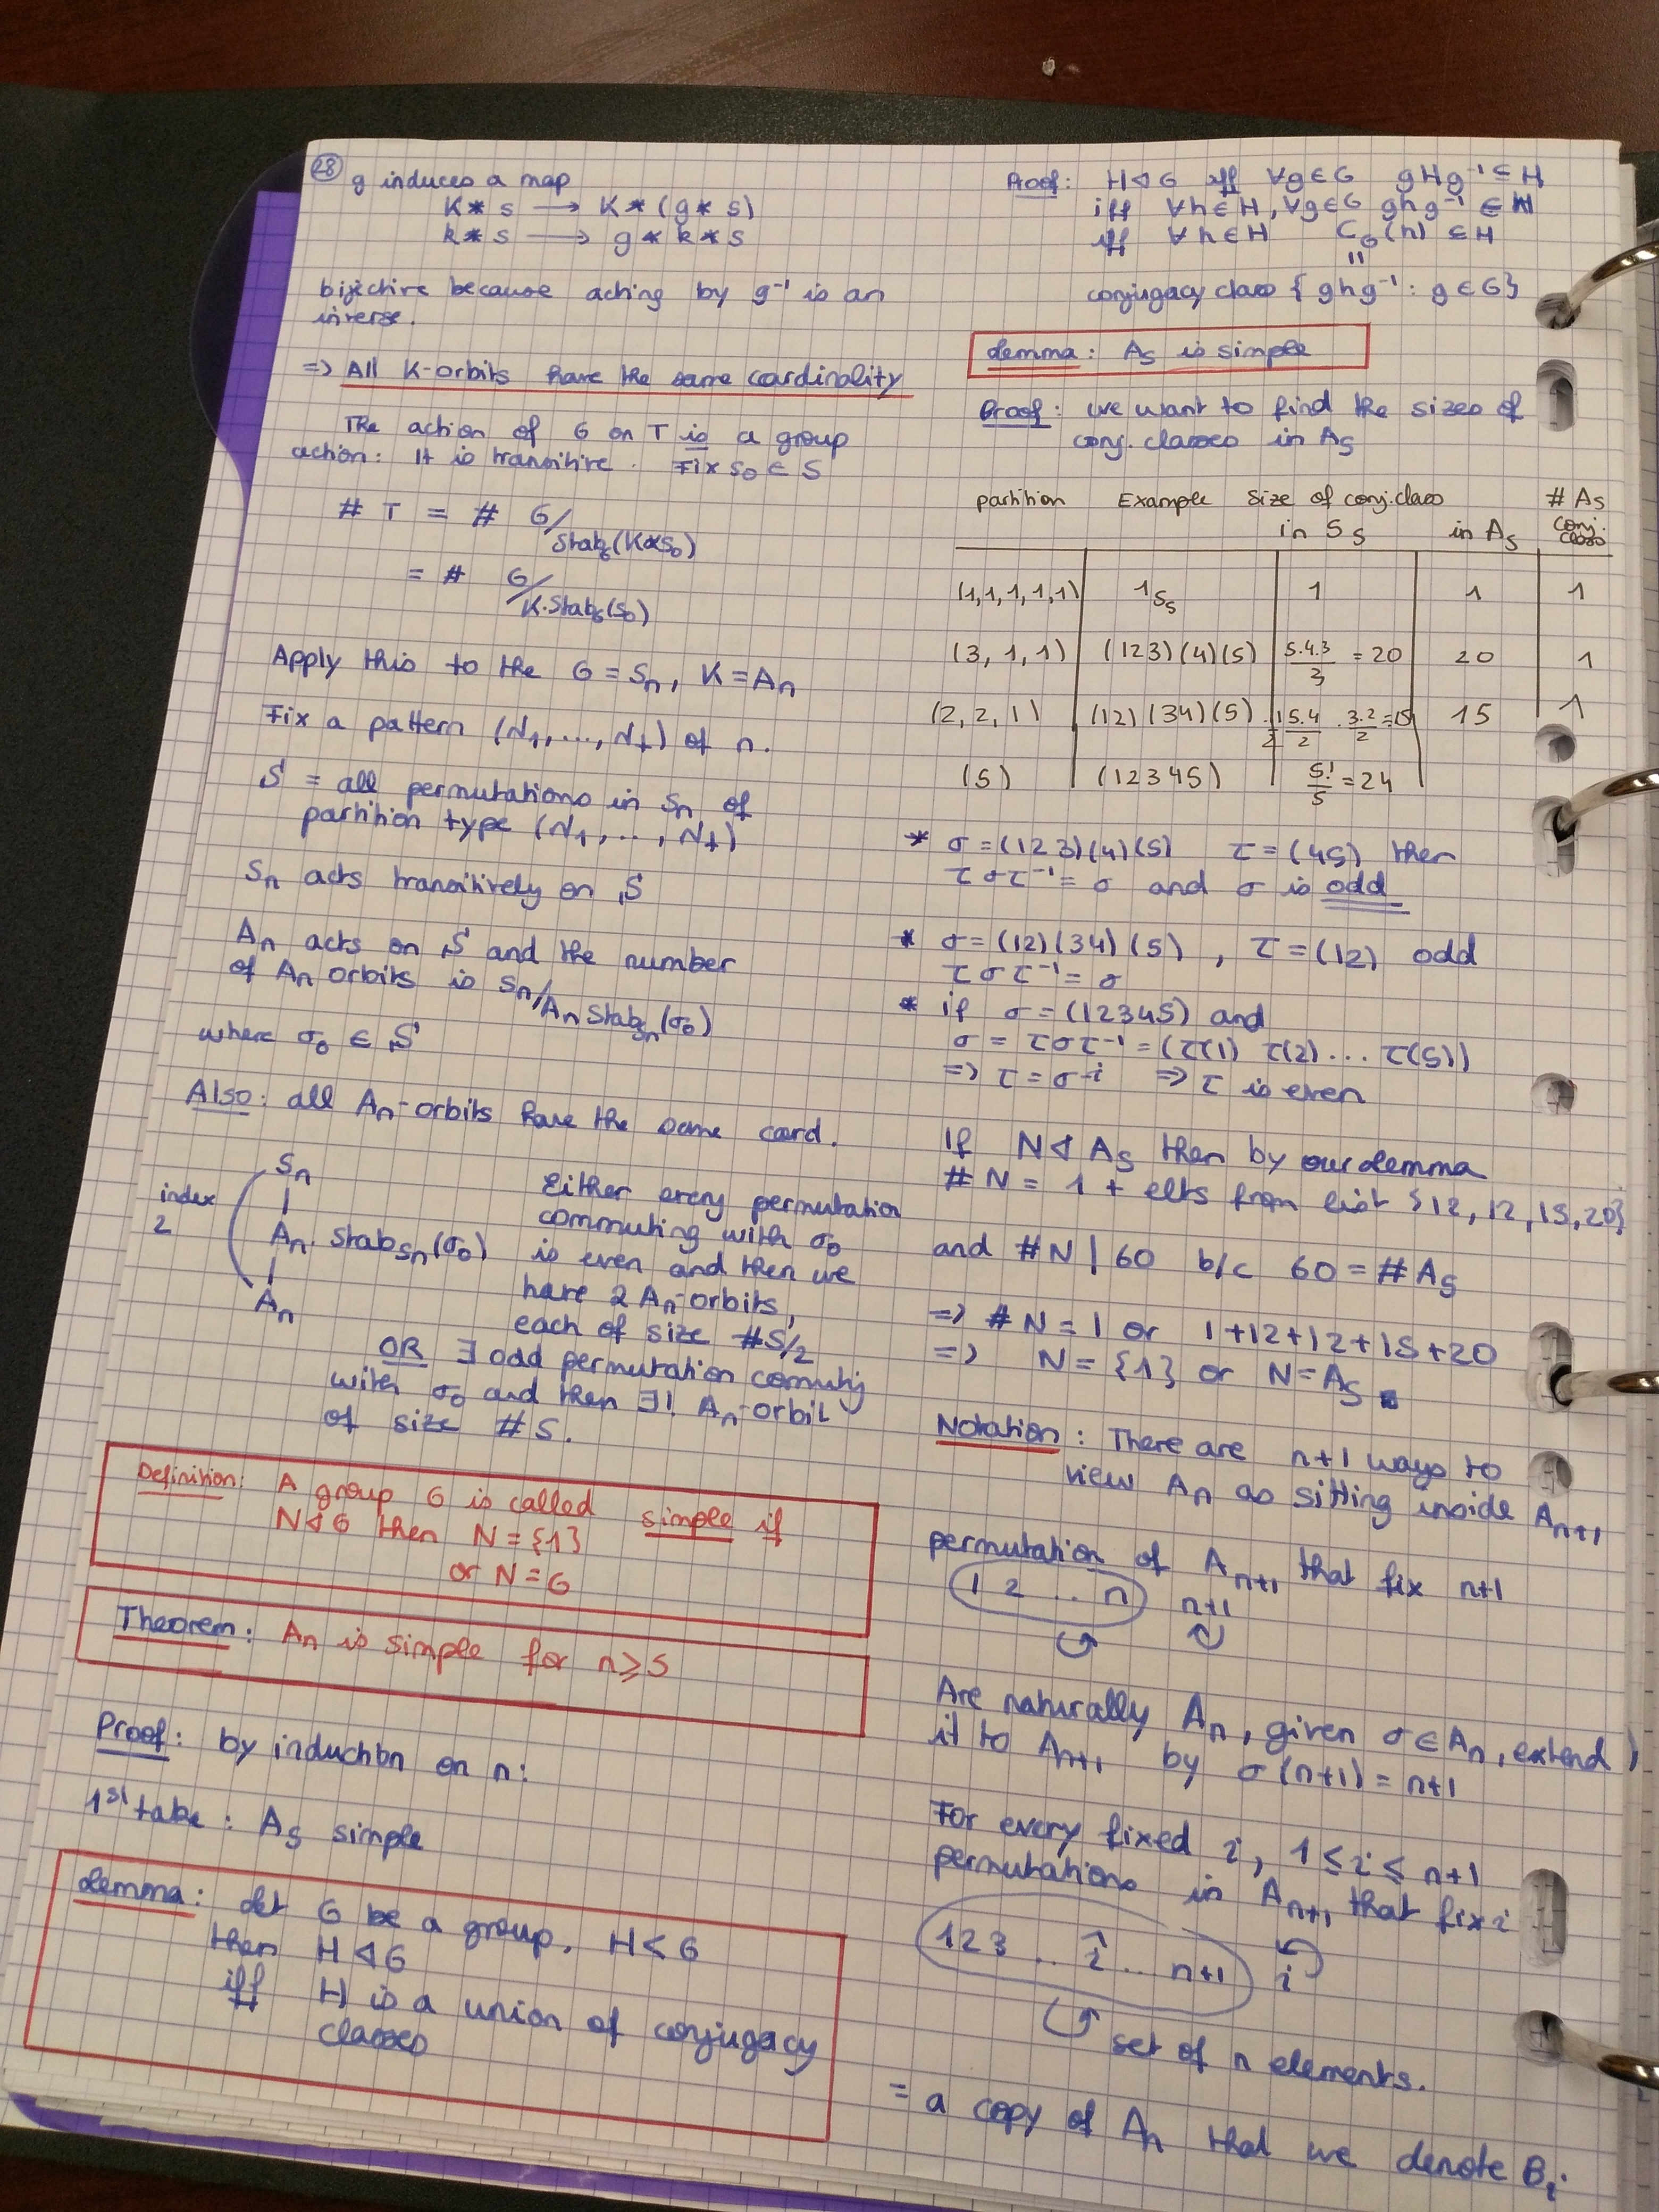 28 g induces a map
K * s → K * (g * s)
k * s → g * k * s
bijective because acting by g⁻¹ is an
inverse.
=> All K-orbits have the same cardinality
The action of G on T is a group
action: It is transitive. Fix s₀ ∈ S
# T = # G/Stab_G(K*s₀)
= # G/K.Stab_G(s₀)
Apply this to the G = Sₙ, K = Aₙ
Fix a pattern (N₁, ..., N_t) of n.
S = all permutations in Sₙ of
partition type (N₁, ..., N_t)
Sₙ acts transitively on S
Aₙ acts on S and the number
of Aₙ orbits is Sₙ/Aₙ Stab_Sₙ(σ₀)
where σ₀ ∈ S
Also: all Aₙ-orbits have the same card.
Sₙ
index
2
Aₙ. Stab_Sₙ(σ₀)
Aₙ
Either every permutation
commuting with σ₀
is even and then we
have 2 Aₙ-orbits,
each of size #S/2
OR ∃ odd permutation commuting
with σ₀ and then ∃! Aₙ-orbit
of size # S.
Definition: A group G is called simple if
N ◁ G then N = {1}
or N = G
Theorem: Aₙ is simple for n ⩾ 5
Proof: by induction on n:
1st take: A₅ simple
Lemma: Let G be a group, H < G
then H ◁ G
iff H is a union of conjugacy
classes
Proof: H ◁ G iff ∀g∈G gHg⁻¹ ⊆ H
iff ∀h∈H, ∀g∈G ghg⁻¹ ∈ H
iff ∀h∈H C_G(h) ⊆ H
=
conjugacy class {ghg⁻¹ : g ∈ G}
Lemma: A₅ is simple
Proof: we want to find the sizes of
conj. classes in A₅
partition Example Size of conj. class # A₅
in S₅ in A₅ conj. class
(1,1,1,1,1) 1_S₅ 1 1 1
(3, 1, 1) (123)(4)(5) 5.4.3/3 = 20 20 1
(2, 2, 1) (12)(34)(5) 1/2 5.4/2 . 3.2/2 = 15 15 1
(5) (12345) 5!/5 = 24
* σ = (123)(4)(5) τ = (45) then
τστ⁻¹ = σ and σ is odd
* σ = (12)(34)(5), τ = (12) odd
τστ⁻¹ = σ
* if σ = (12345) and
σ = τστ⁻¹ = (τ(1) τ(2) ... τ(5))
=> τ = σ^i => τ is even
If N ◁ A₅ then by our lemma
# N = 1 + elts from list {12, 12, 15, 20}
and #N | 60 b/c 60 = #A₅
=> # N = 1 or 1+12+12+15+20
=> N = {1} or N = A₅ ■
Notation: There are n+1 ways to
view Aₙ as sitting inside Aₙ₊₁
permutation of Aₙ₊₁ that fix n+1
1 2 ... n n+1
Are naturally Aₙ, given σ ∈ Aₙ, extend
it to Aₙ₊₁ by σ(n+1) = n+1
For every fixed i, 1 ≤ i ≤ n+1
permutations in Aₙ₊₁ that fix i
1 2 3 ... î ... n+1 i
set of n elements.
= a copy of Aₙ that we denote Bᵢ.